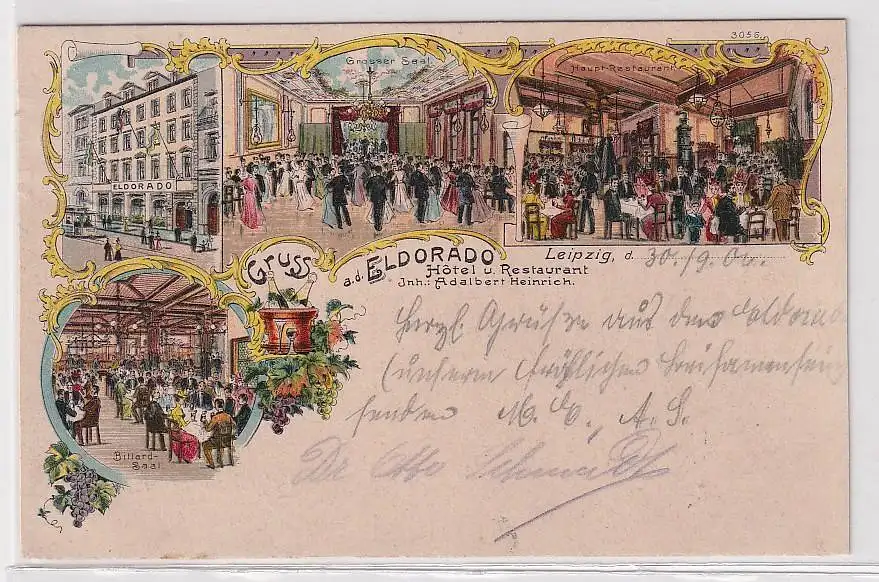 3056
Grosser Saal.
Haupt-Restaurant.
ELDORADO
Gruss
a.d. ELDORADO
Hôtel u. Restaurant
Inh.: Adalbert Heinrich.
Leipzig, d. 30./9. 04.
Billard-
Saal.
Herzl. Grüße aus dem Eldorado
(unserm fröhlichen Beisammensein
senden M. E., A. S.
Dr Otto Schmidt